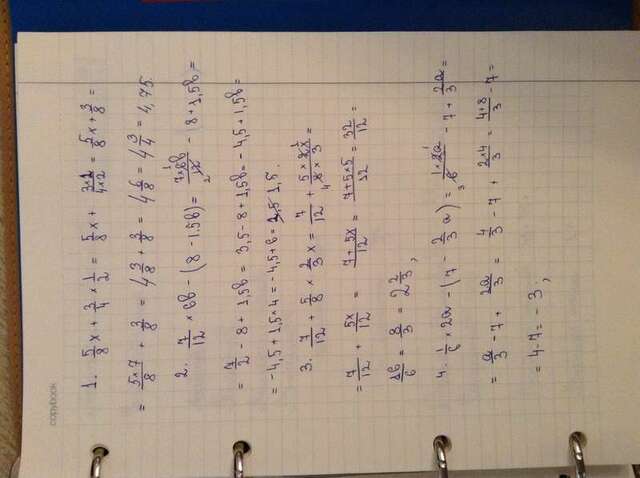 1. 5/8 x + 3/4 × 1/2 = 5/8 x + 3×1/4×2 = 5/8 x + 3/8 =
= 5×7/8 + 3/8 = 4 3/8 + 3/8 = 4 6/8 = 4 3/4 = 4,75.
2. 7/12 × 6b - (8 - 1.5b) = 7×6b/12 - 8 + 1,5b =
= 7/2 - 8 + 1,5b = 3,5 - 8 + 1,5b = -4,5 + 1,5b =
= -4,5 + 1,5×4 = -4,5 + 6 = 1,5.
3. 7/12 + 5/8 × 2/3 x = 7/12 + 5×2x/8×3 =
= 7/12 + 5x/12 = 7+5x/12 = 7+5×5/12 = 32/12 =
= 16/6 = 8/3 = 2 2/3;
4. 1/6 × 2a - (7 - 2/3 a) = 1×2a/6 - 7 + 2a/3 =
= a/3 - 7 + 2a/3 = 4/3 - 7 + 2×4/3 = 4+8/3 - 7 =
= 4-7 = -3;
copybook